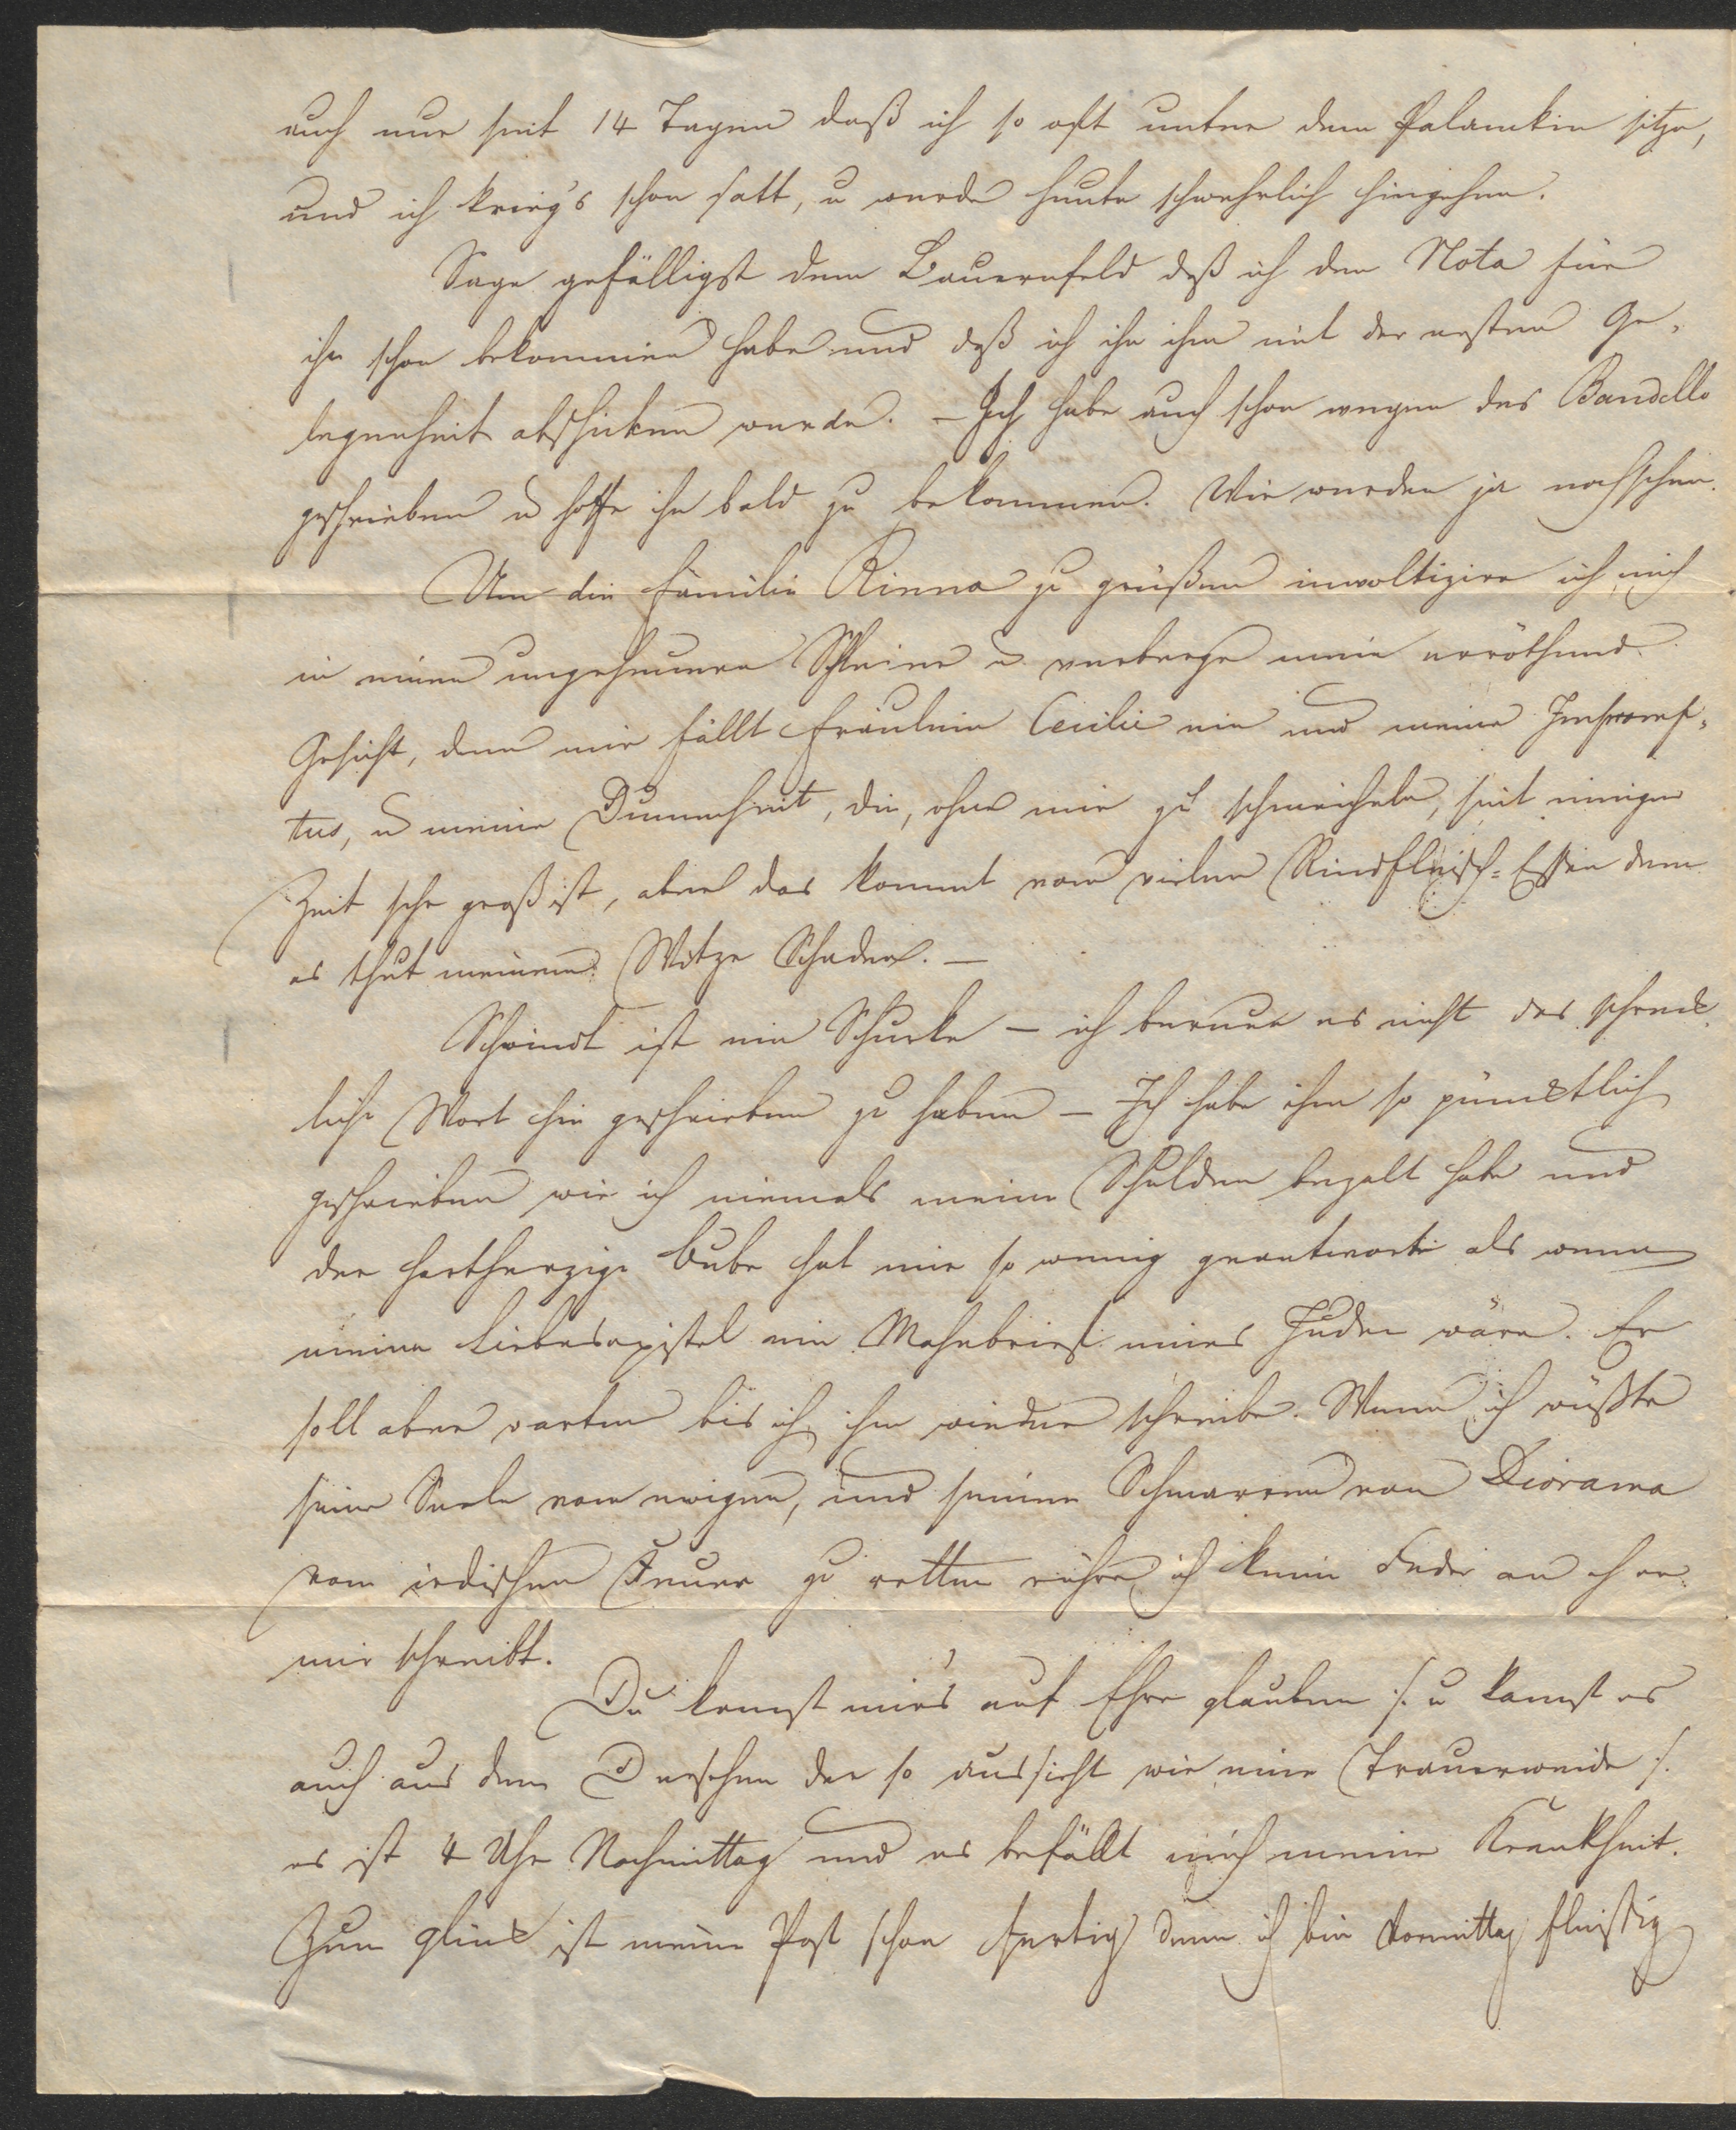 auch nur seit 14 Tagen daß ich so oft unter dem Palankin sitze,
und ich krieg's schon satt, u werde heute schwehrlich hingehen.
Sage gefälligst dem Bauernfeld daß ich den Nota für
ihn schon bekommen habe und daß ich ihn ihm mit der ersten Ge-
legenheit abschicken werde. – Ich habe auch schon wegen des Bandello
geschrieben u hoffe ihn bald zu bekommen. Wir werden ja nachsehen.
Um die Familie Rinna zu grüßen involtizire ich mich
in einen ungeheuren Schleier u verberge mein erröthend
Gesicht, denn mir fällt Fräulein Cecilie ein und meine Impromp-
tus, u meine Dummheit, die, ohne mir zu schmeicheln, seit einiger
Zeit sehr groß ist, aber das kommt vom vielen Rindfleisch-Essen denn
es thut meinem Witze Schaden. –
Schwindt ist ein Schurke – ich bereue es nicht das schreck-
liche Wort hin geschrieben zu haben – Ich habe ihm so pünctlich
geschrieben wie ich niemals meine Schulden bezalt habe und
der hartherzige Bube hat mir so wenig geantwortet als wenn
meine Liebesepistel ein Mahnbrief eines Juden wäre. Er
soll aber warten bis ich ihm wieder schreibe. Wenn ich wüßte
seine Seele vom ewigen, und seinen Schmarren von Diorama
vom irdischen Feuer zu retten rühre ich keine Feder an eh er
mir schreibt.
Du kannst mir's auf Ehre glauben /: u kannst es
auch aus dem sehen der so aussieht wie eine Trauerweide :/
es ist 4 Uhr Nachmittag und es befällt mich meine Krankheit.
Zum glück ist meine Post schon fertig denn ich bin Vormittag fleißig